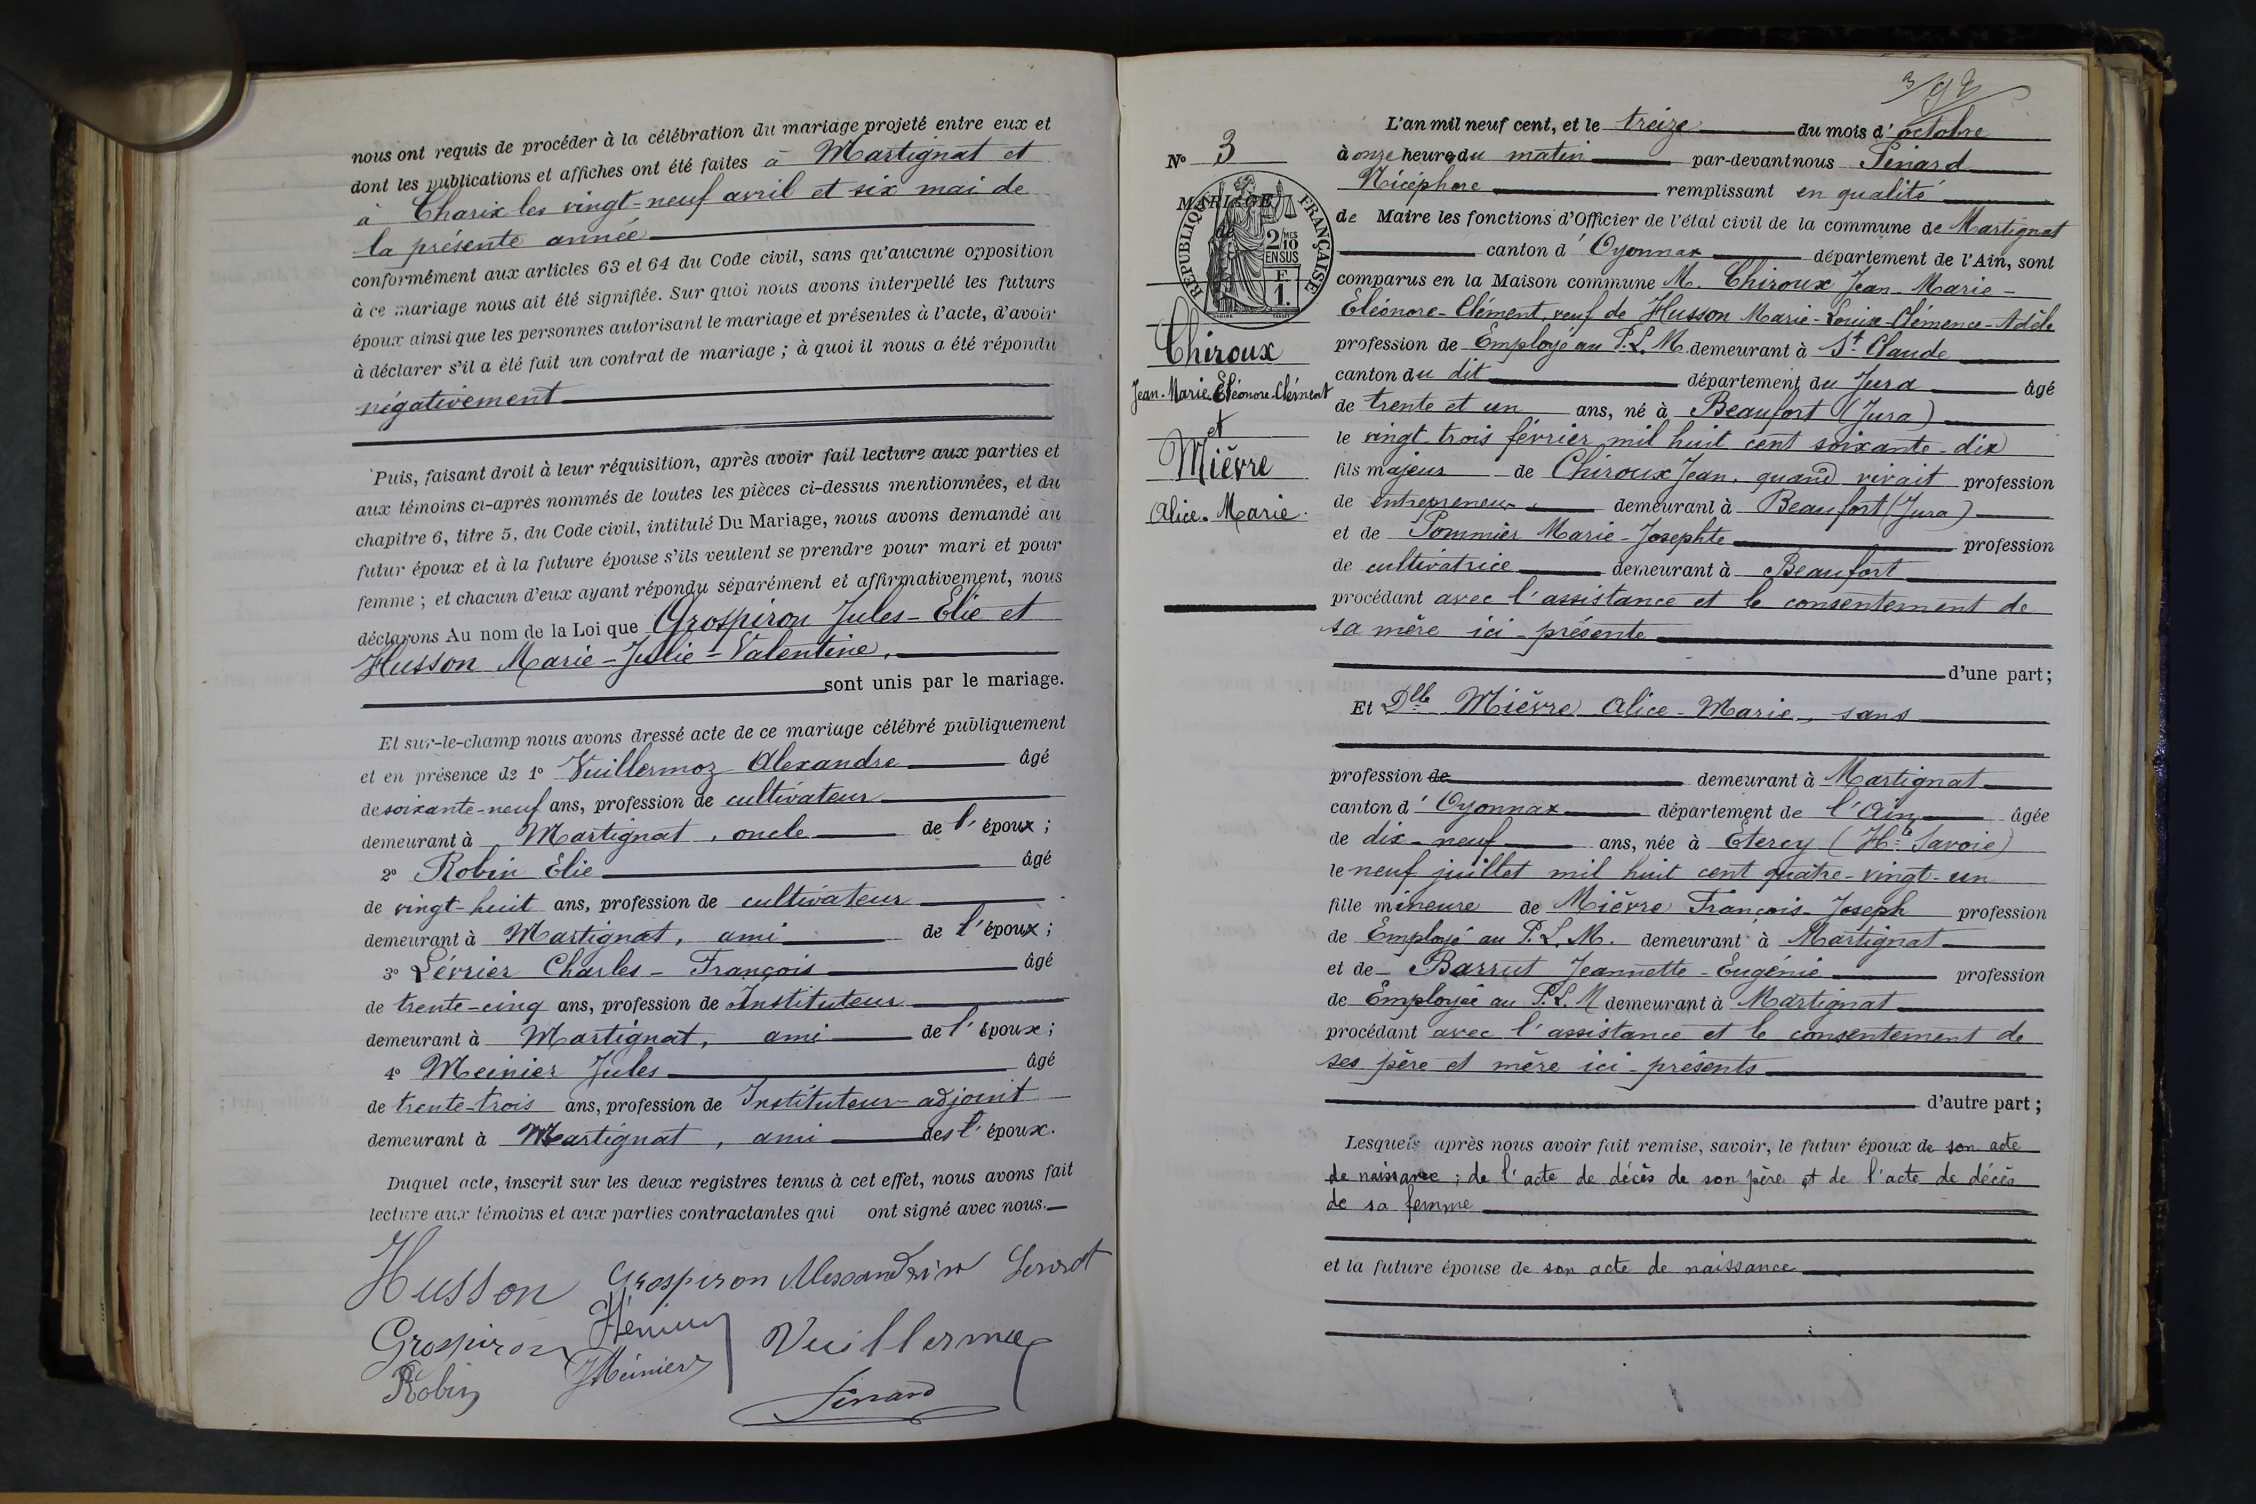 nous ont requis de procéder à la célébration du mariage projeté entre eux et
dont les publications et affiches ont été faites à Martignat et
à Charix les vingt-neuf avril et six mai de
la présente année
conformément aux articles 63 et 64 du Code civil, sans qu'aucune opposition
à ce mariage nous ait été signifiée. Sur quoi nous avons interpellé les futurs
époux ainsi que les personnes autorisant le mariage et présentes à l'acte, d'avoir
à déclarer s'il a été fait un contrat de mariage ; à quoi il nous a été répondu
négativement
Puis, faisant droit à leur réquisition, après avoir fait lecture aux parties et
aux témoins ci-après nommés de toutes les pièces ci-dessus mentionnées, et du
chapitre 6, titre 5, du Code civil, intitulé Du Mariage, nous avons demandé au
futur époux et à la future épouse s'ils veulent se prendre pour mari et pour
femme ; et chacun d'eux ayant répondu séparément et affirmativement, nous
déclarons Au nom de la Loi que Grospiron Jules-Elie et
Husson Marie-Julie-Valentine,
sont unis par le mariage.
Et sur-le-champ nous avons dressé acte de ce mariage célébré publiquement
et en présence de 1° Vuillermoz Alexandre âgé
de soixante-neuf ans, profession de cultivateur
demeurant à Martignat, oncle de l'époux ;
2° Robin Elie âgé
de vingt-huit ans, profession de cultivateur
demeurant à Martignat, ami de l'époux ;
3° Lévrier Charles-François âgé
de trente-cinq ans, profession de Instituteur
demeurant à Martignat, ami de l'époux ;
4° Meinier Jules âgé
de trente-trois ans, profession de Instituteur-adjoint
demeurant à Martignat, ami des l'époux.
Duquel acte, inscrit sur les deux registres tenus à cet effet, nous avons fait
lecture aux témoins et aux parties contractantes qui ont signé avec nous.
Husson Grospiron Alexandrine
Grospiron Vuillermoz
Robin JMeinier
Sinard
N° 3
MARIAGE
de
RÉPUBLIQUE FRANÇAISE
2/10 MES
EN SUS
F
1.
Chiroux
Jean-Marie Eléonore-Clément
et
Mièvre
Alice-Marie.
L'an mil neuf cent, et le treize du mois d'octobre
à onze heures du matin par-devant nous Sinard
Nicéphore remplissant en qualité
de Maire les fonctions d'Officier de l'état civil de la commune de Martignat
canton d'Oyonnax département de l'Ain, sont
comparus en la Maison commune M. Chiroux Jean-Marie-
Eléonore-Clément, veuf de Husson Marie-Louise-Clémence-Adèle
profession de Employé au P.L.M. demeurant à St Claude
canton du dit département du Jura âgé
de trente et un ans, né à Beaufort (Jura)
le vingt trois février mil huit cent soixante-dix
fils majeur de Chiroux Jean, quand vivait profession
de entrepreneur, demeurant à Beaufort (Jura)
et de Pommier Marie-Josephte profession
de cultivatrice demeurant à Beaufort
procédant avec l'assistance et le consentement de
sa mère ici-présente
d'une part ;
Et Dlle Mièvre Alice-Marie, sans
profession de demeurant à Martignat
canton d'Oyonnax département de l'Ain âgée
de dix-neuf ans, née à Etercy (Hte Savoie)
le neuf juillet mil huit cent quatre-vingt-un
fille mineure de Mièvre François-Joseph profession
de Employé au P.L.M. demeurant à Martignat
et de Barrut Jeannette-Eugénie profession
de Employée au P.L.M demeurant à Martignat
procédant avec l'assistance et le consentement de
ses père et mère ici-présents
d'autre part ;
Lesquels après nous avoir fait remise, savoir, le futur époux de son acte
de naissance ; de l'acte de décès de son père et de l'acte de décès
de sa femme
et la future épouse de son acte de naissance